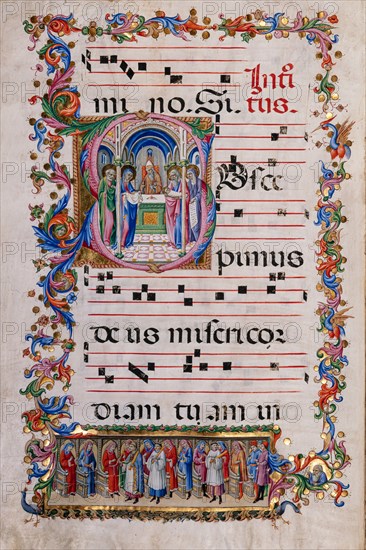 mi no. Si. Intro
tus.
Suſce
pimus
deus misericor
diam tuam in